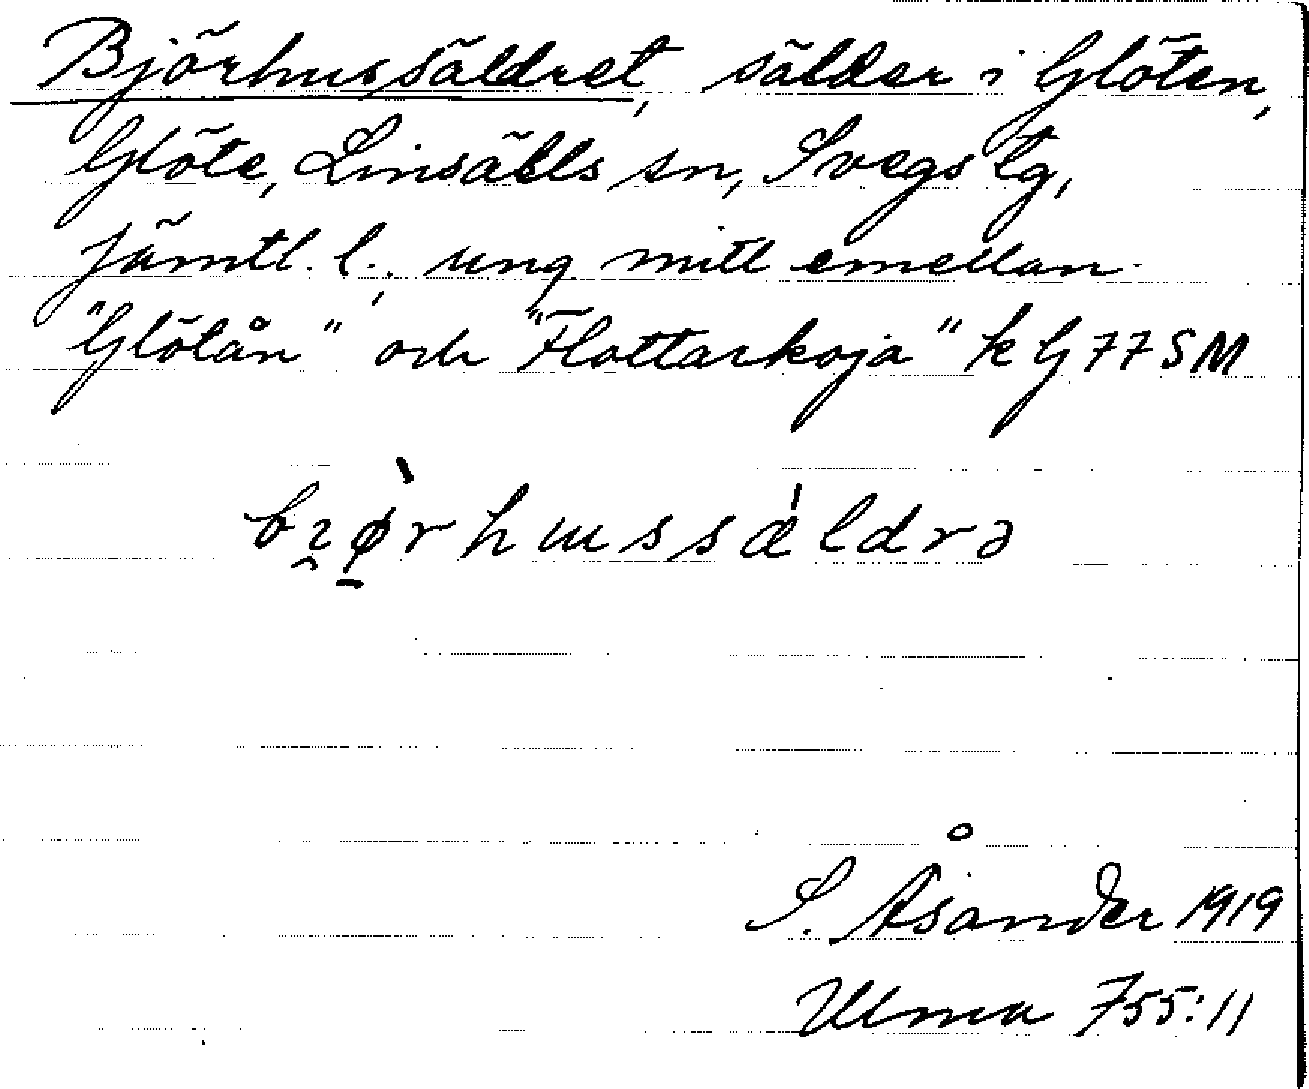 Björhussäldret, sälder i Glöten,
Glöte, Linsälls sn, Svegs tg,
Jämtl. l., ung. mitt emellan
"Glötån" och "Flottarkoja" k G 77 SM
bɿø̀rhussǽldrə
S. Åsander 1919
Ulma 755:11